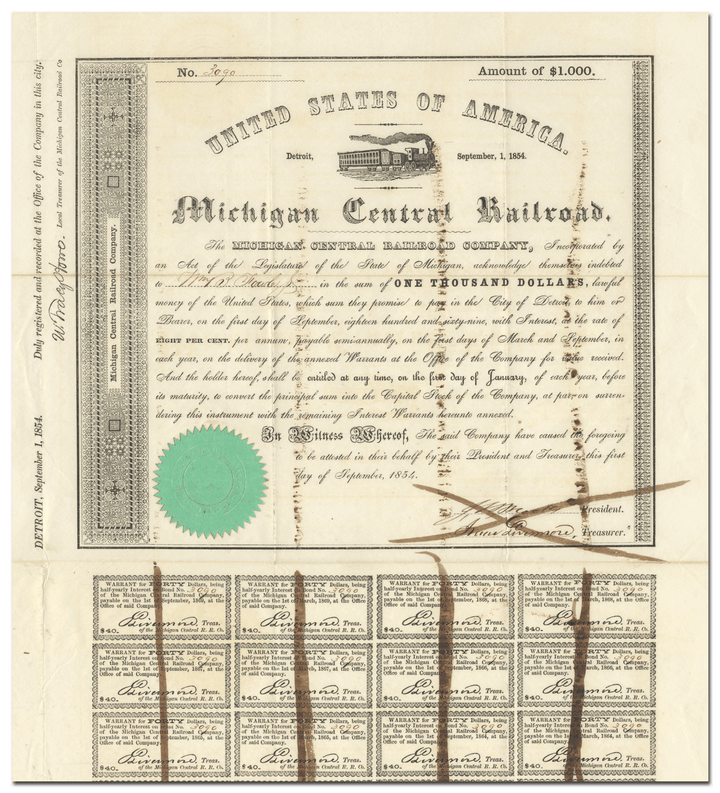 No. 3090
Amount of $1.000.
UNITED STATES OF AMERICA.
Detroit, September, 1, 1854.
Michigan Central Railroad.
The MICHIGAN CENTRAL RAILROAD COMPANY, Incorporated by
an Act of the Legislature of the State of Michigan, acknowledge themselves indebted
to in the sum of ONE THOUSAND DOLLARS, lawful
money of the United States, which sum they promise to pay in the City of Detroit, to him or
Bearer, on the first day of September, eighteen hundred and sixty-nine, with Interest, at the rate of
EIGHT PER CENT. per annum, payable semi-annually, on the first days of March and September, in
each year, on the delivery of the annexed Warrants at the Office of the Company for value received.
And the holder hereof, shall be entitled at any time, on the first day of January, of each year, before
its maturity, to convert the principal sum into the Capital Stock of the Company, at par on surren-
dering this instrument with the remaining Interest Warrants hereunto annexed.
In Witness Whereof, The said Company have caused the foregoing
to be attested in their behalf by their President and Treasurer, this first
day of September, 1854.
President.
Livermore, Treasurer.
Michigan Central Railroad Company.
DETROIT, September 1, 1854. Duly registered and recorded at the Office of the Company in this city.
Local Treasurer of the Michigan Central Railroad Co
WARRANT for FORTY Dollars, being
half-yearly Interest on Bond No. 3090
of the Michigan Central Railroad Company,
payable on the 1st of September, 1869, at the
Office of said Company.
Livermore, Treas.
$40. of the Michigan Central R. R. Co.
WARRANT for FORTY Dollars, being
half-yearly Interest on Bond No. 3090
of the Michigan Central Railroad Company,
payable on the 1st of March, 1869, at the Office
of said Company.
Livermore, Treas.
$40. of the Michigan Central R. R. Co.
WARRANT for FORTY Dollars, being
half-yearly Interest on Bond No. 3090
of the Michigan Central Railroad Company,
payable on the 1st of September, 1868, at the
Office of said Company.
Livermore, Treas.
$40. of the Michigan Central R. R. Co.
WARRANT for FORTY Dollars, being
half-yearly Interest on Bond No. 3090
of the Michigan Central Railroad Company,
payable on the 1st of March, 1868, at the Office
of said Company.
Livermore, Treas.
$40. of the Michigan Central R. R. Co.
WARRANT for FORTY Dollars, being
half-yearly Interest on Bond No. 3090
of the Michigan Central Railroad Company,
payable on the 1st of September, 1867, at the
Office of said Company.
Livermore, Treas.
$40. of the Michigan Central R. R. Co.
WARRANT for FORTY Dollars, being
half-yearly Interest on Bond No. 3090
of the Michigan Central Railroad Company,
payable on the 1st of March, 1867, at the Office
of said Company.
Livermore, Treas.
$40. of the Michigan Central R. R. Co.
WARRANT for FORTY Dollars, being
half-yearly Interest on Bond No. 3090
of the Michigan Central Railroad Company,
payable on the 1st of September, 1866, at the
Office of said Company.
Livermore, Treas.
$40. of the Michigan Central R. R. Co.
WARRANT for FORTY Dollars, being
half-yearly Interest on Bond No. 3090
of the Michigan Central Railroad Company,
payable on the 1st of March, at the Office
of said Company.
Livermore, Treas.
$40. of the Michigan Central R. R. Co.
WARRANT for FORTY Dollars, being
half-yearly Interest on Bond No. 3090
of the Michigan Central Railroad Company,
payable on the 1st of September, 1865, at the
Office of said Company.
Livermore, Treas.
$40. of the Michigan Central R. R. Co.
WARRANT for FORTY Dollars, being
half-yearly Interest on Bond No. 3090
of the Michigan Central Railroad Company,
payable on the 1st of March, 1865, at the Office
of said Company.
Livermore, Treas.
$40. of the Michigan Central R. R. Co.
WARRANT for FORTY Dollars, being
half-yearly Interest on Bond No. 3090
of the Michigan Central Railroad Company,
payable on the 1st of September, 1864, at the
Office of said Company.
Livermore, Treas.
$40. of the Michigan Central R. R. Co.
WARRANT for FORTY Dollars, being
half-yearly Interest on Bond No. 3090
of the Michigan Central Railroad Company,
payable on the 1st of March, 1864, at the Office
of said Company.
Livermore, Treas.
$40. of the Michigan Central R. R. Co.